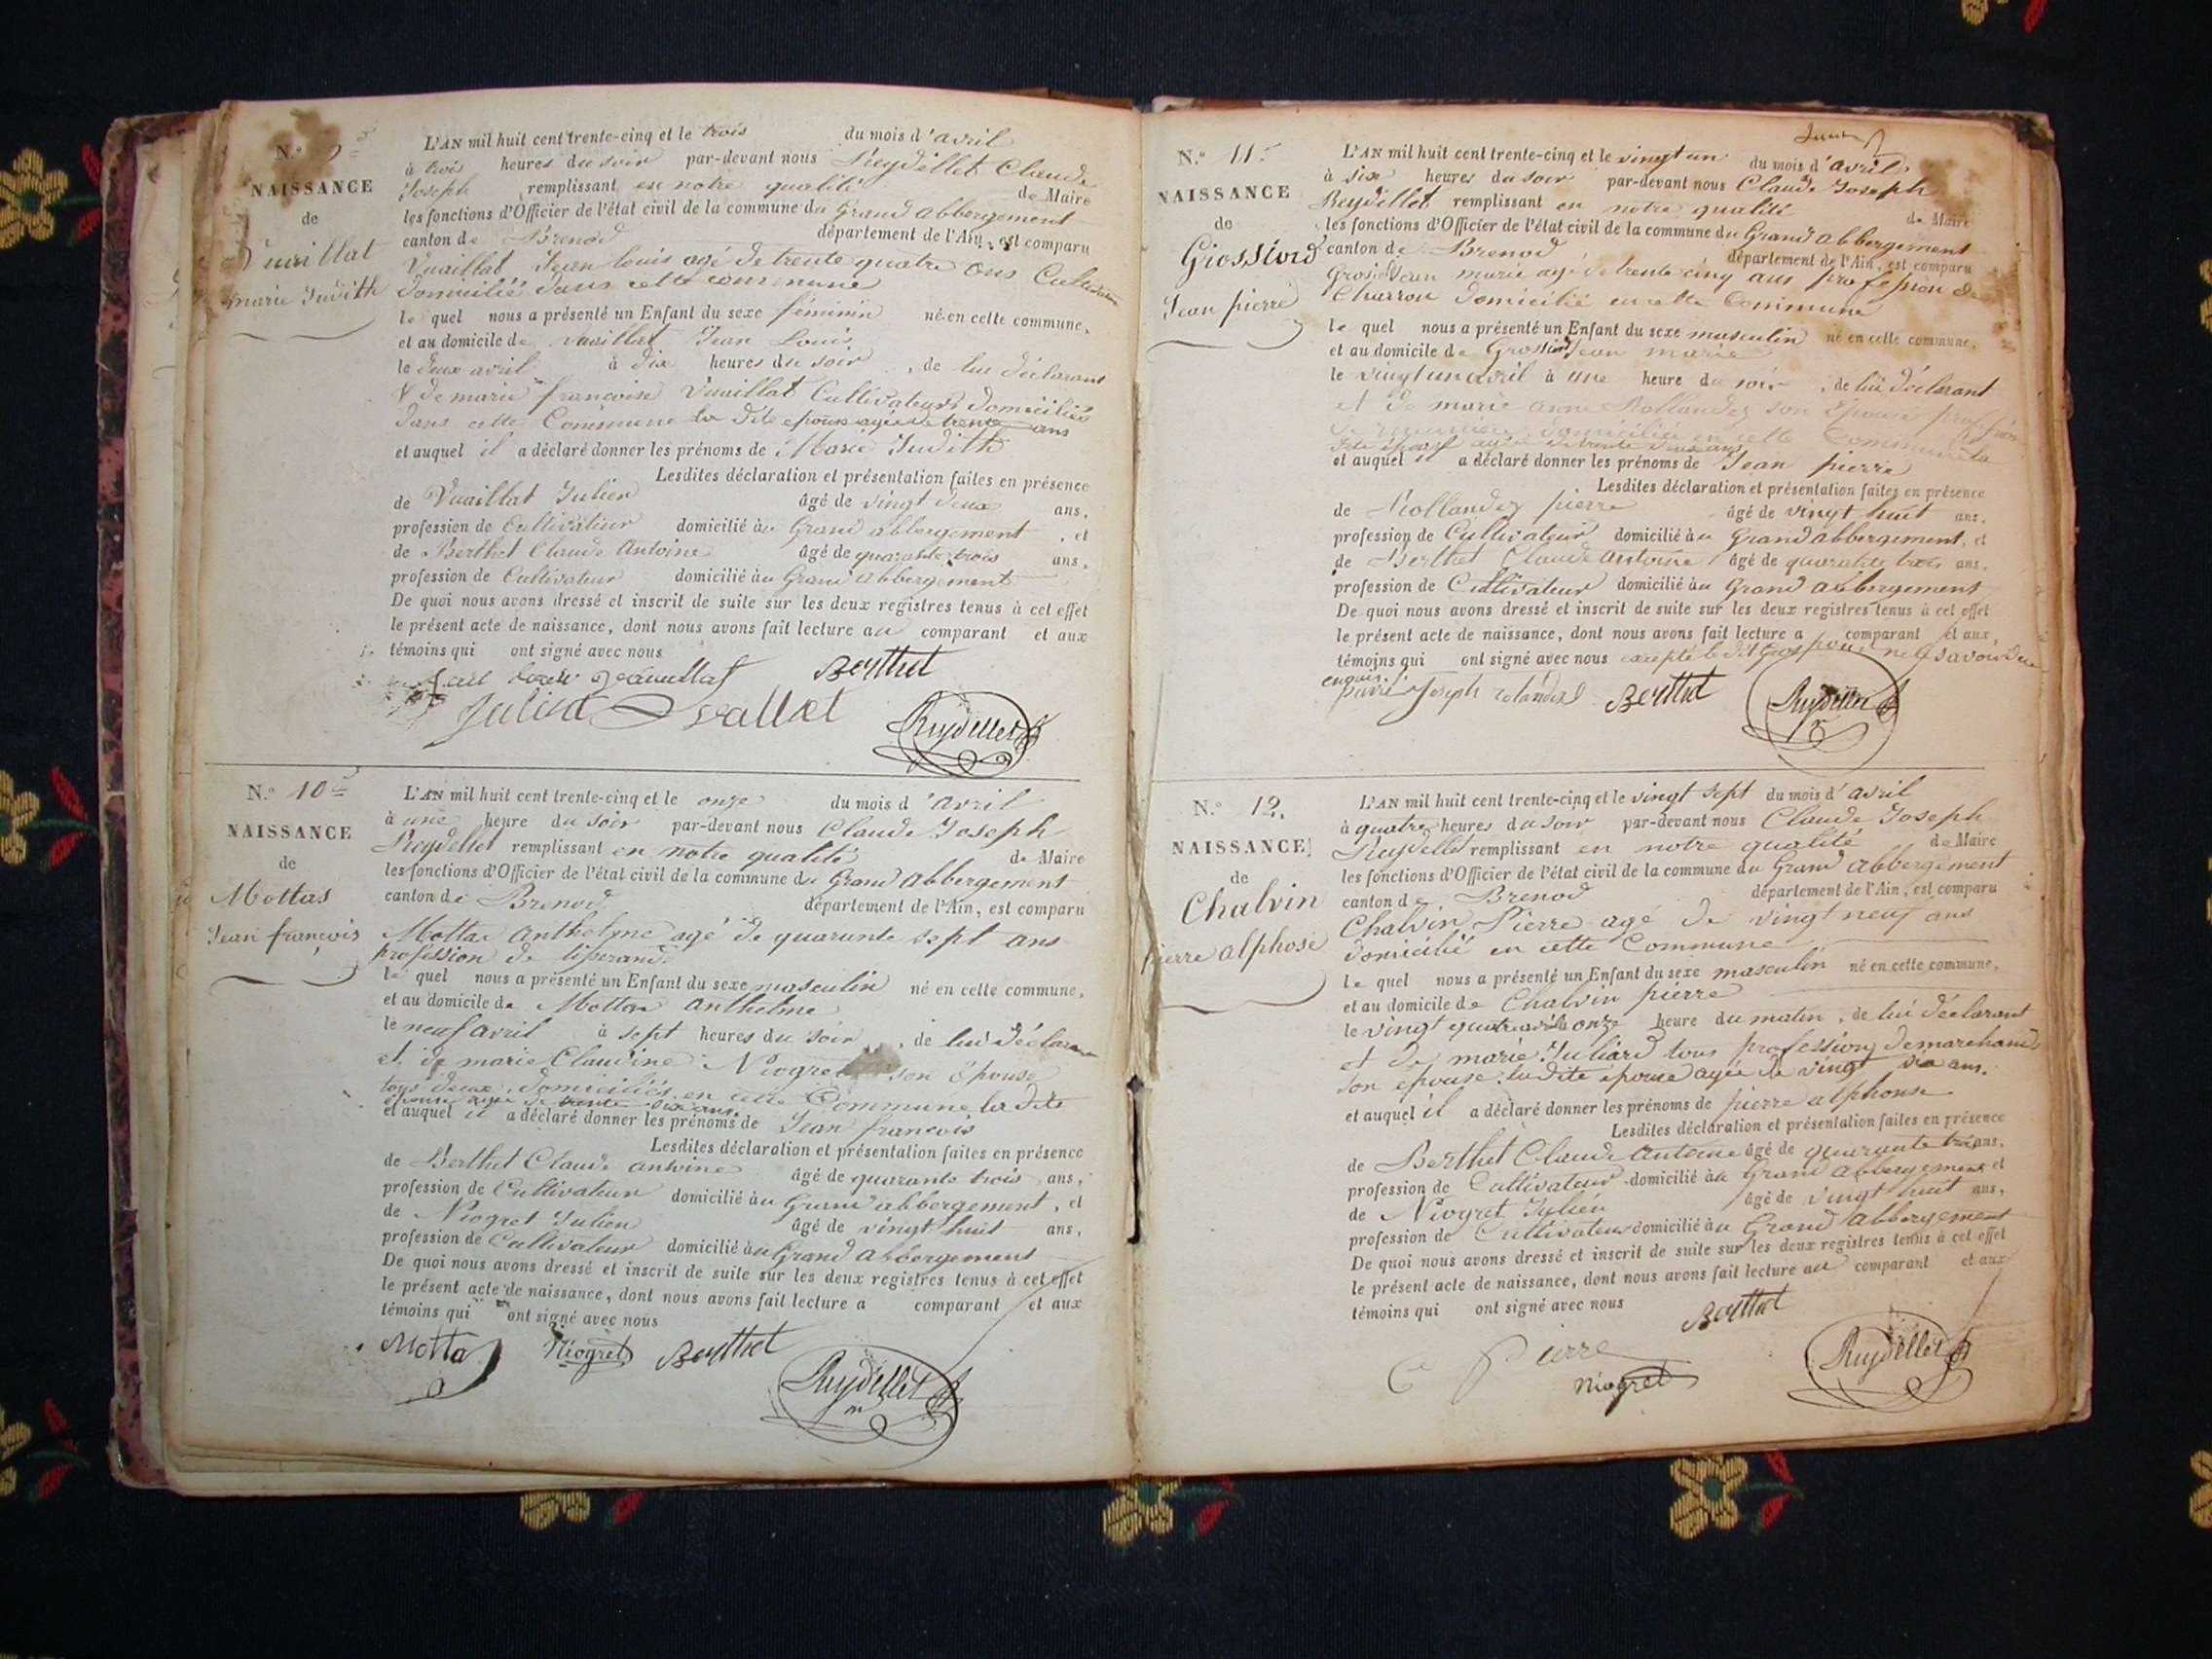 N.º 9
NAISSANCE
de
Vuaillat
marie Judith
L'AN mil huit cent trente-cinq et le trois du mois d'avril
à trois heures du soir par-devant nous Reydellet Claude
Joseph remplissant en notre qualité de Maire
les fonctions d'Officier de l'état civil de la commune du Grand abbergement
canton de Brenod département de l'Ain, est comparu
Vuaillat Jean louis agé de trente quatre ans Cultivateur
domicilié dans cette commune
le quel nous a présenté un Enfant du sexe féminin né en cette commune,
et au domicile de Vuaillat Jean Louis
le deux avril à dix heures du soir, de lui déclarant
& de marie françoise Vuaillat Cultivateurs domiciliés
dans cette Commune la dite epouse agée de trente ans
et auquel il a déclaré donner les prénoms de Marie Judith
Lesdites déclaration et présentation faites en présence
de Vuaillat Julien âgé de vingt deux ans,
profession de Cultivateur domicilié au Grand abbergement, et
de Berthet Claude Antoine âgé de quarante trois ans,
profession de Cultivateur domicilié au Grand abbergement
De quoi nous avons dressé et inscrit de suite sur les deux registres tenus à cet effet
le présent acte de naissance, dont nous avons fait lecture au comparant et aux
témoins qui ont signé avec nous
Berthet
Reydellet
N.º 10
NAISSANCE
de
Mottas
Jean françois
L'AN mil huit cent trente-cinq et le onze du mois d'avril
à une heure du soir par-devant nous Claude Joseph
Reydellet remplissant en notre qualité de Maire
les fonctions d'Officier de l'état civil de la commune du Grand abbergement
canton de Brenod département de l'Ain, est comparu
Mottas Anthelme agé de quarante sept ans
profession de
le quel nous a présenté un Enfant du sexe masculin né en cette commune,
et au domicile de Mottas anthelme
le neuf avril à sept heures du soir, de lui déclarant
et de marie Claudine Niogret son épouse
tous deux domiciliés en cette Commune la dite
épouse agée de trente six ans.
et auquel il a déclaré donner les prénoms de Jean françois
Lesdites déclaration et présentation faites en présence
de Berthet Claude antoine âgé de quarante trois ans,
profession de Cultivateur domicilié au Grand abbergement, et
de Niogret Julien âgé de vingt huit ans,
profession de Cultivateur domicilié au Grand abbergement
De quoi nous avons dressé et inscrit de suite sur les deux registres tenus à cet effet
le présent acte de naissance, dont nous avons fait lecture a comparant et aux
témoins qui ont signé avec nous
Motta Niogret Berthet
Reydellet
N.º 11
NAISSANCE
de
Grossiord
Jean pierre
L'AN mil huit cent trente-cinq et le vingt un du mois d'avril
à six heures du soir par-devant nous Claude Joseph
Reydellet remplissant en notre qualité de Maire
les fonctions d'Officier de l'état civil de la commune du Grand abbergement
canton de Brenod département de l'Ain, est comparu
Jean marie agé de trente cinq ans profession de
Charron domicilié en cette Commune
le quel nous a présenté un Enfant du sexe masculin né en cette commune,
et au domicile de Grossiord Jean marie
le vingt un avril à une heure du soir, de lui déclarant
et de marie anne Rollandez son épouse profession
domiciliée en cette Commune la
dite épouse agée de trente deux ans
et auquel il a déclaré donner les prénoms de Jean pierre
Lesdites déclaration et présentation faites en présence
de Rollandez pierre âgé de vingt huit ans,
profession de Cultivateur domicilié au Grand abbergement, et
de Berthet Claude antoine âgé de quarante trois ans,
profession de Cultivateur domicilié au Grand abbergement
De quoi nous avons dressé et inscrit de suite sur les deux registres tenus à cet effet
le présent acte de naissance, dont nous avons fait lecture a comparant et aux
témoins qui ont signé avec nous excepté le dit
Joseph Berthet
Reydellet
N.º 12.
NAISSANCE
de
Chalvin
pierre alphose
L'AN mil huit cent trente-cinq et le vingt sept du mois d'avril
à quatre heures du soir par-devant nous Claude Joseph
Reydellet remplissant en notre qualité de Maire
les fonctions d'Officier de l'état civil de la commune du Grand abbergement
canton de Brenod département de l'Ain, est comparu
Chalvin Pierre agé de vingt neuf ans
domicilié en cette Commune
le quel nous a présenté un Enfant du sexe masculin né en cette commune,
et au domicile de Chalvin pierre
le vingt quatre avril à onze heure du matin, de lui déclarant
et de marie Juliard tous profession de marchands
son epouse la dite épouse agée de vingt six ans.
et auquel il a déclaré donner les prénoms de pierre alphonse
Lesdites déclaration et présentation faites en présence
de Berthet Claude Antoine âgé de quarante trois ans,
profession de Cultivateur domicilié au Grand abbergement et
de Niogret Julien âgé de vingt huit ans,
profession de Cultivateur domicilié au Grand abbergement
De quoi nous avons dressé et inscrit de suite sur les deux registres tenus à cet effet
le présent acte de naissance, dont nous avons fait lecture au comparant et aux
témoins qui ont signé avec nous
Berthet
Pierre
Niogret
Reydellet